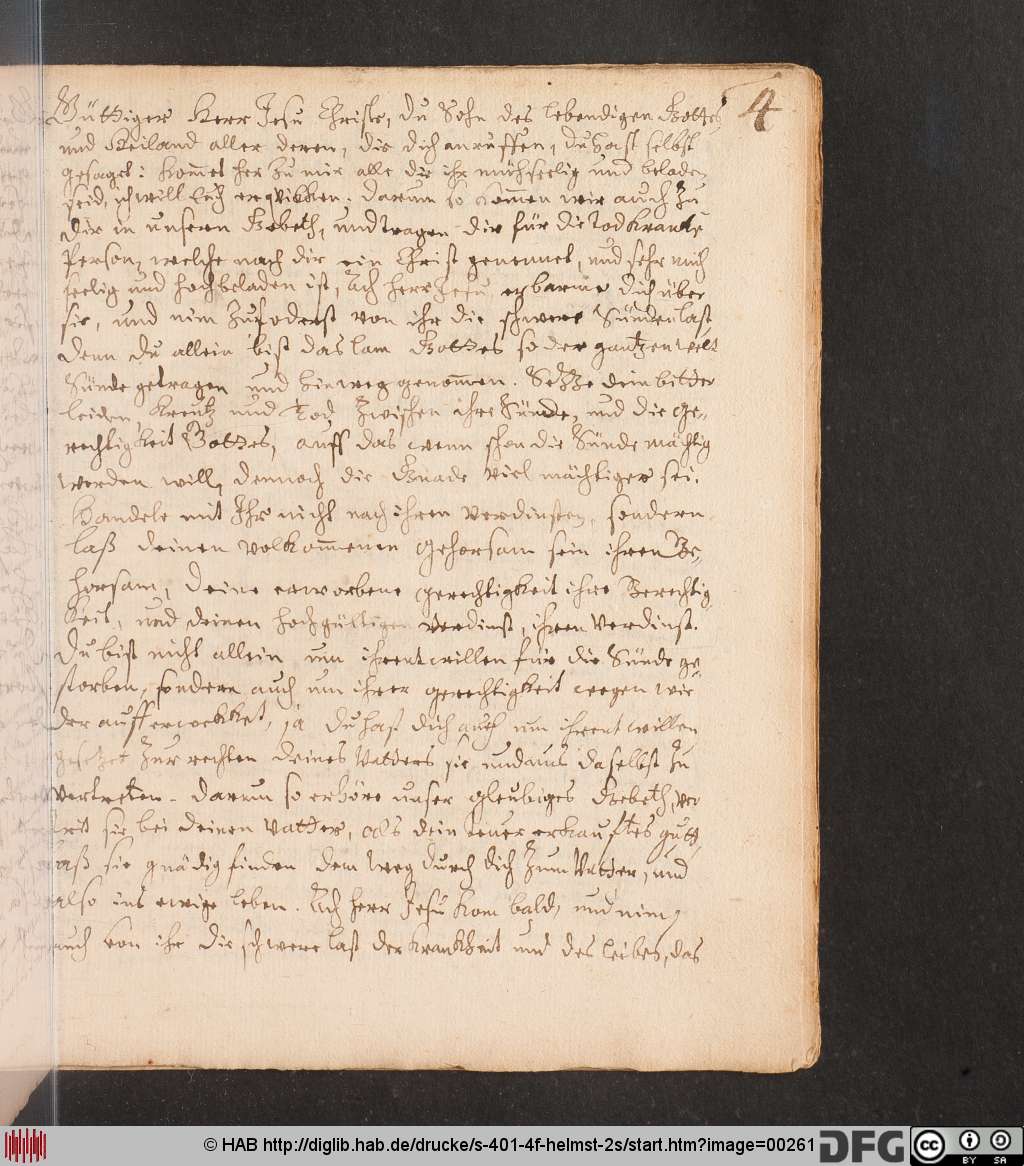 4
Güttiger Herr Jesu Christe, du Sohn des lebendigen Gottes
und Heiland aller deren, die dich anruffen, du hast selbst
gesaget: Kommet her zu mir alle die ihr mühseelig und beladen
seid, ich will Euch erqvikken. darum so kommen wir auch zu
dir in unserm Gebeth, und tragen dir für die Todkranke
Person, welche nach dir ein Christ genennet, und sehr müh
seelig und hochbeladen ist, Ach Herr Jesu, erbarme dich über
sie, und nim zufoderst von ihr die schwere Sündenlast,
denn du allein bist das lam Gottes so der gantzen welt
Sünde getragen und hinweg genommen. Setze dein bitter
leiden, Kreutz und Tod zwischen ihre Sünde, und die ge-
rechtigkeit Gottes, auff das wenn schon die Sünde mächtig
werden will, dennoch die Gnade viel mächtiger sei.
Handele mit Ihr nicht nach ihren verdinsten, sondern
laß deinen volkommenen gehorsam sein ihren Ge-
horsam, deine erworbene gerechtigkeit ihre Gerechtig
keit, und deinen hochgültigen verdinst, ihren Verdinst.
Du bist nicht allein um ihrent willen für die Sünde ge-
storben, sondern auch um ihrer gerechtigkeit wegen wie
der aufferwekket, ja du hast dich auch um ihrent willen
gesetzet zur rechten deines Vatters sie daselbst zu
vertreten. darum so erhöre unser gleubiges Gebeth, ver
trit sie bei deinen Vatter, als dein teuer erkauftes gutt,
laß sie gnädig finden dem weg durch dich zum Vatter, und
also ins ewige leben. Ach Herr Jesu kom bald, und nim
auch von ihr die schwere last der Krankheit und des leibes, das
© HAB http://diglib.hab.de/drucke/s-401-4f-helmst-2s/start.htm?image=00261
DFG
cc BY SA